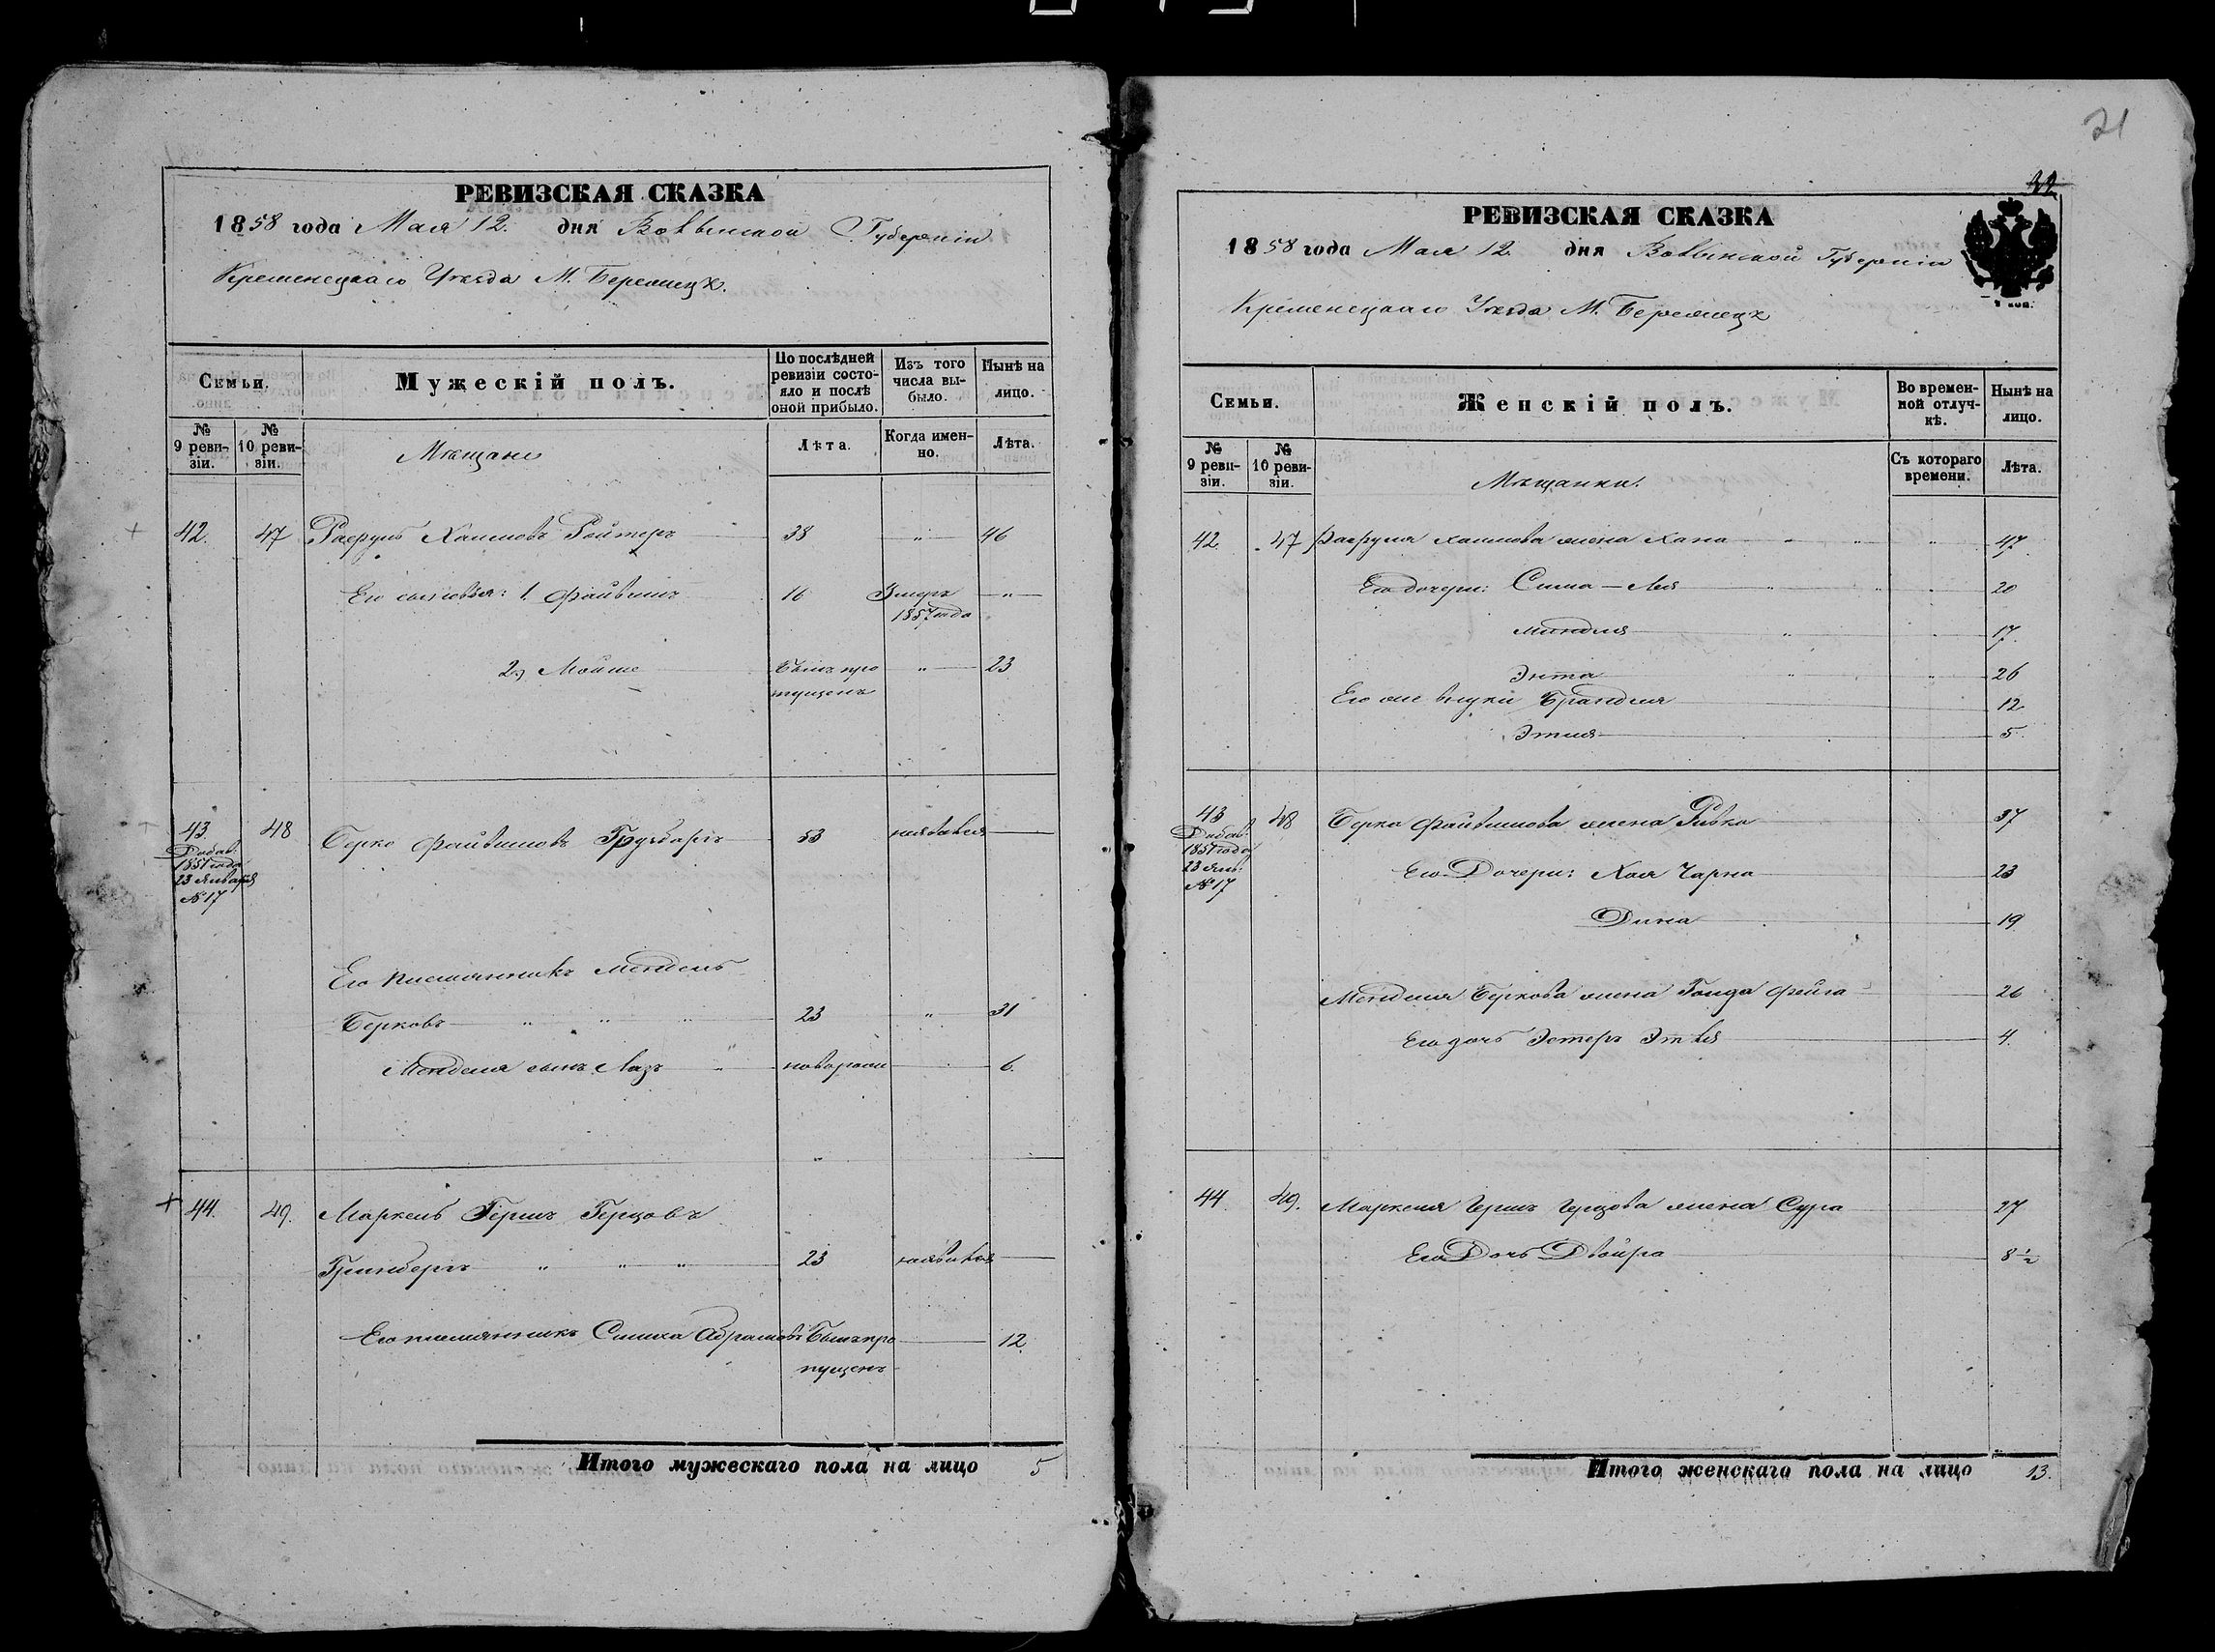 РЕВИЗСКАЯ СКАЗКА
1858 года Мая 12. дня Волынской Губерніи
Кременецкаго Уѣзда М. Берестецк.
Семьи.
Мужескій полъ.
По послѣдней ревизіи состояло и послѣ оной прибыло.
Изъ того числа выбыло.
Нынѣ на лицо.
№ 9 ревизіи.
№ 10 ревизіи.
Мѣщане
Лѣта.
Когда именно.
Лѣта.
42. 47 Хаимовъ Рейтеръ 38 " 46
Его сыновья: 1. Файвишъ 16 Умеръ 1857 года "
2) Мойше Былъ пропущенъ " 23
43. Добав. 1857 года 23 Января №17
48 Берко Файвишовъ 53 неявился
Его племянникъ Мендель
Берковъ " " " 23 " 31
Менделя сынъ Лазъ " новорожд 6.
44. 49. Маркель Гершъ Герцовъ
Гринбергъ " " " 23 неявился
Его племянникъ Симха Абрамовъ Былъ пропущенъ 12.
Итого мужескаго пола на лицо 5
21
32
РЕВИЗСКАЯ СКАЗКА
1858 года Мая 12. дня Волынской Губерніи
Кременецкаго Уѣзда М. Берестецк
Семьи.
Женскій полъ.
Во временной отлучкѣ.
Нынѣ на лицо.
№ 9 ревизіи.
№ 10 ревизіи.
Мѣщанки.
Съ котораго времени.
Лѣта.
42. 47 Хаимова жена Хана " " " 47.
Его дочери: Сима-Лея " " 20
Миндля " 17.
Энта " " 26
Его же внуки Брандля 12
Этля 5.
43 Добав. 1857 года 23 Янв. №17
48 Берка Файвишова жена Ривка 37
Его Дочери: Хая Чарна 23
Дина 19
Менделя Беркова жена Фейга 26
Его дочь Эстеръ Этля 4.
44 49. Маркеля Гершъ Герцова жена Сура 27
Его Дочь Двойра 8 ½
Итого женскаго пола на лицо 13.